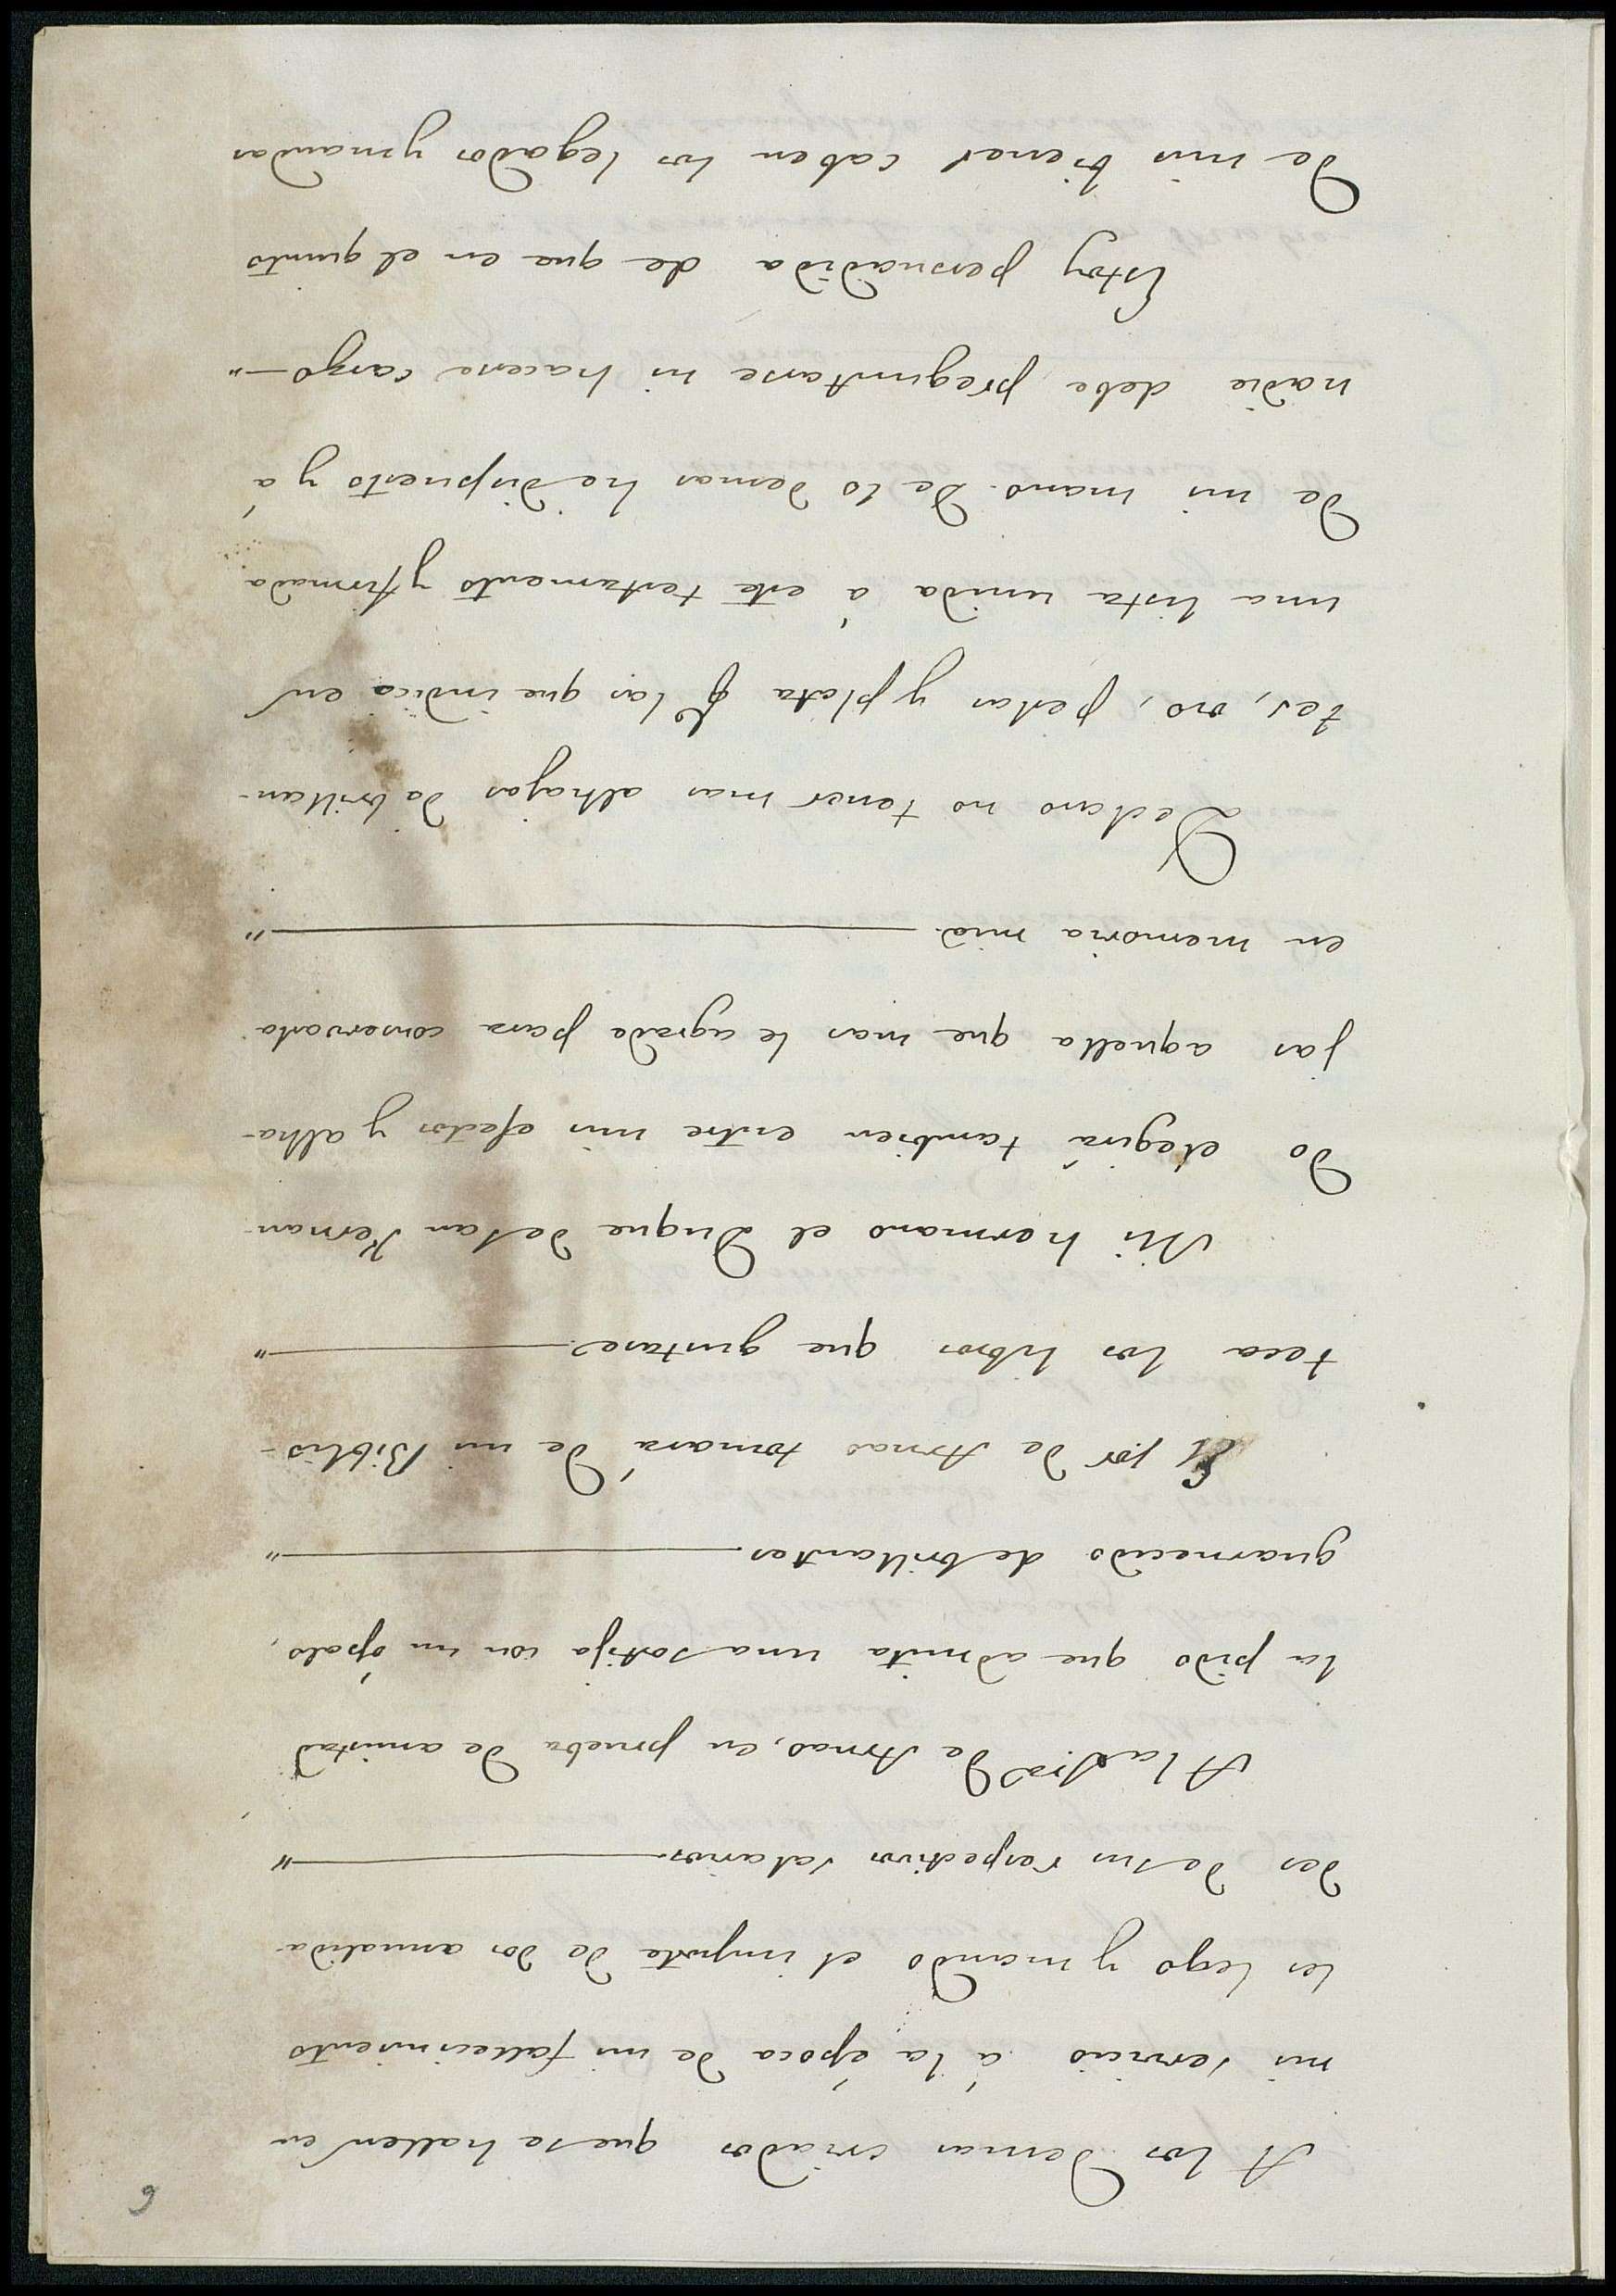 6
A los demas criados que se hallen en
mi servicio á la época de mi fallecimiento
les lego y mando el importe de dos anualida-
des de sus respectivos salarios. ——— "
A la Sra. de Arnao, en prueba de amistad
la pido que admita una sortija con un ópalo,
guarnecido de brillantes. ——— "
El Sor de Arnao tomará de mi Biblio-
teca los libros que gustare. ——— "
Mi hermano el Duque de San Fernan-
do elegirá tambien entre mis efectos y alha-
jas aquella que mas le agrade para conservarla
en memoria mia. ——— "
Declaro no tener mas alhajas de brillan-
tes, oro, perlas y plata q.e las que indico en
una lista unida á este testamento y firmada
de mi mano. De lo demas he dispuesto y á
nadie debe preguntarse ni hacerse cargo — "
Estoy persuadida de que en el quinto
de mis bienes caben los legados y mandas